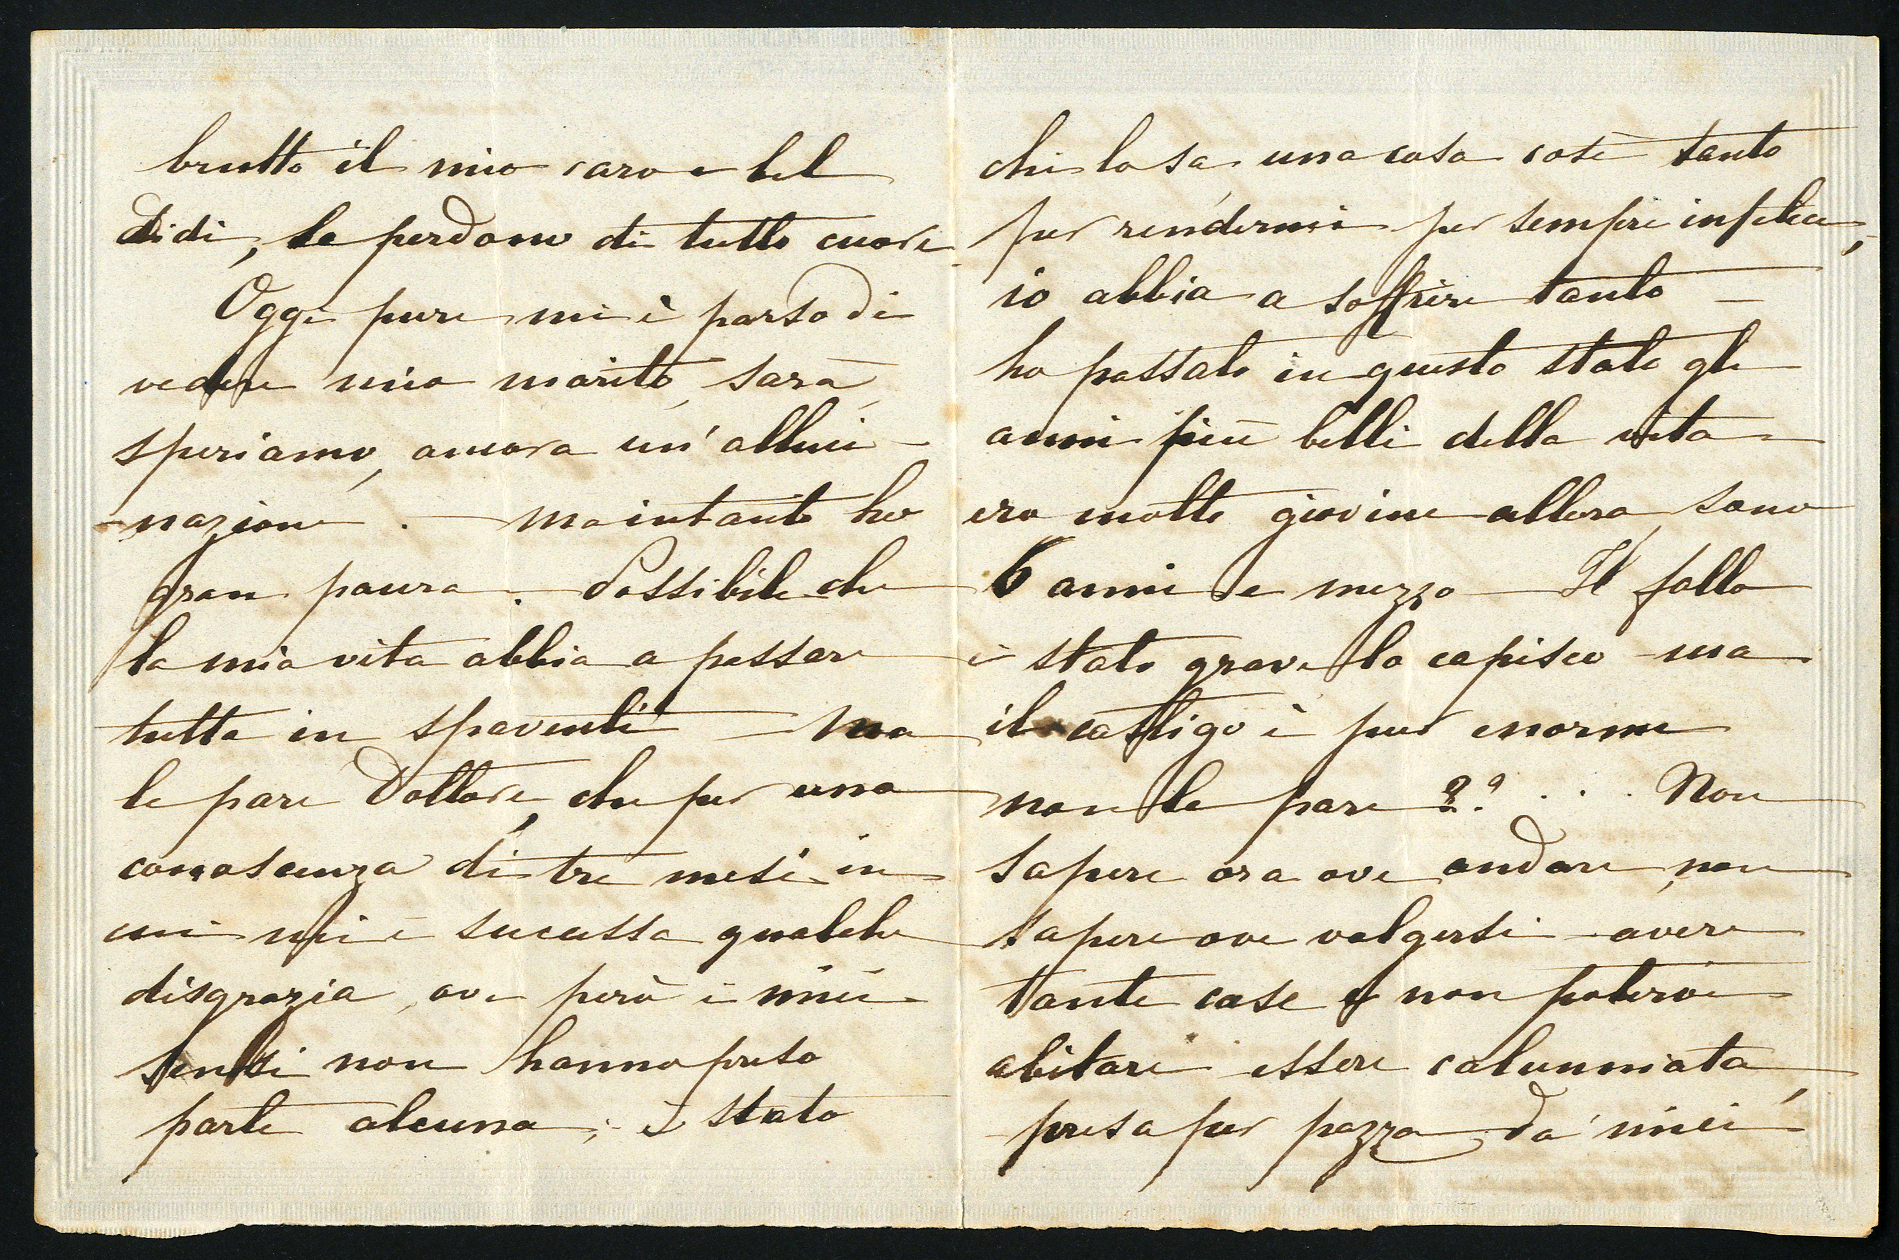 brutto il mio caro e bel
Didi, le perdono di tutto cuore
Oggi pure mi è parso di
vedere mio marito, sarà,
speriamo, ancora un' alluci-
nazione. — ma intanto ho
gran paura. Possibile che
la mia vita abbia a passare
tutta in spaventi — Ma
le pare Dottore, che per una
conoscenza di tre mesi in
cui mi è sucessa qualche
disgrazia, ove però i miei
sensi non hanno preso
parte alcuna; è stata
chi lo sa una cosa così tanto
per rendermi per sempre infelice,
io abbia a soffrire tanto —
ho passato in questo stato gli
anni più belli della vita
ero molto giovine allora, sono
6 anni e mezzo — Il fallo
è stato grave lo capisco - ma
il castigo è pur enorme
non le pare ?? . . . Non
sapere ora ove andare, non
sapere ove volgersi - avere
tante case e non potervi
abitare essere calunniata,
presa per pazza da' miei